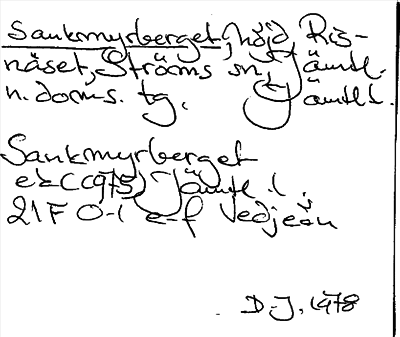 Sankmyrberget, höjd, Ris-
näset, Ströms sn, Jämtl.
n. doms. tg, Jämtl l.
Sankmyrberget
ek (1975) Jämtl. l.
21F 0-1 e-f Vedjeön
D-J, 1978